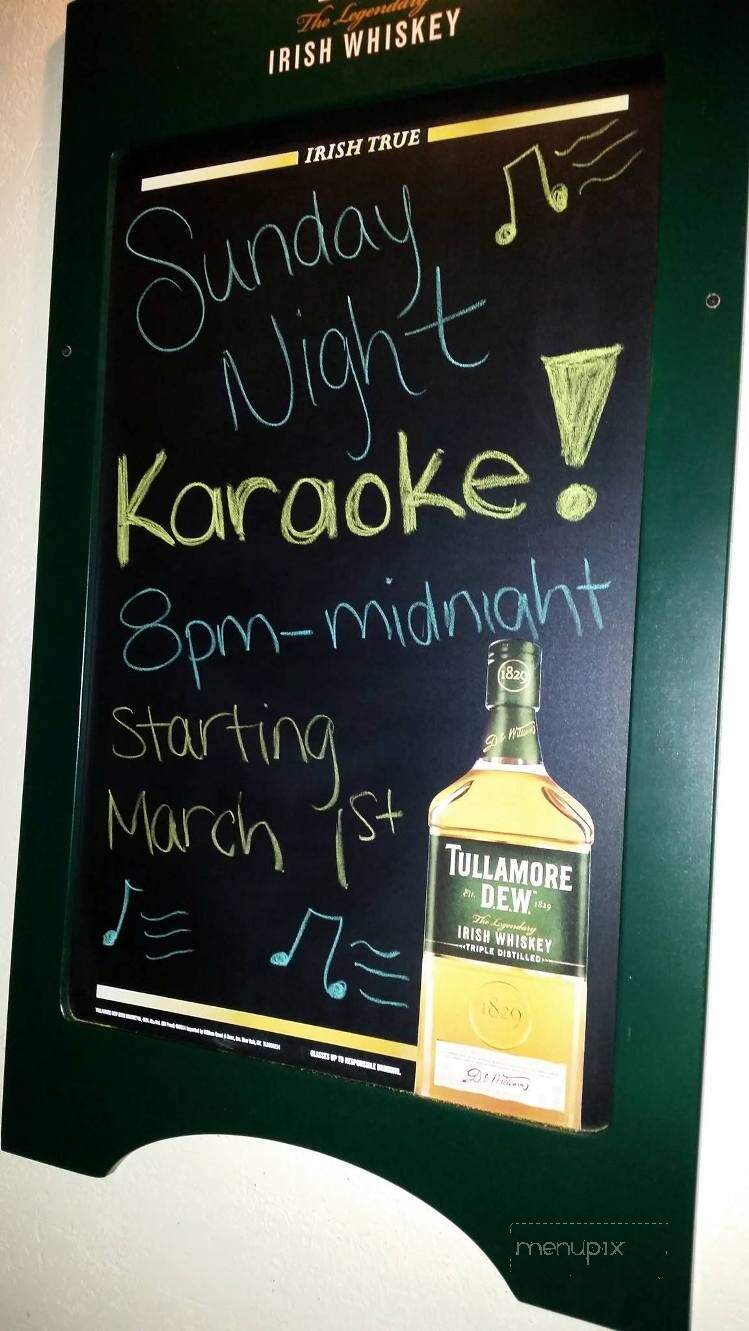 The Legendary
IRISH WHISKEY
IRISH TRUE
Sunday
Night
Karaoke!
8pm-midnight
Starting
March 1st
1829
D.E. Williams
TULLAMORE
D.E.W.
Est. 1829
The Legendary
IRISH WHISKEY
TRIPLE DISTILLED
1829
D.E. Williams
GLASSES UP TO RESPONSIBLE DRINKING.
menupix